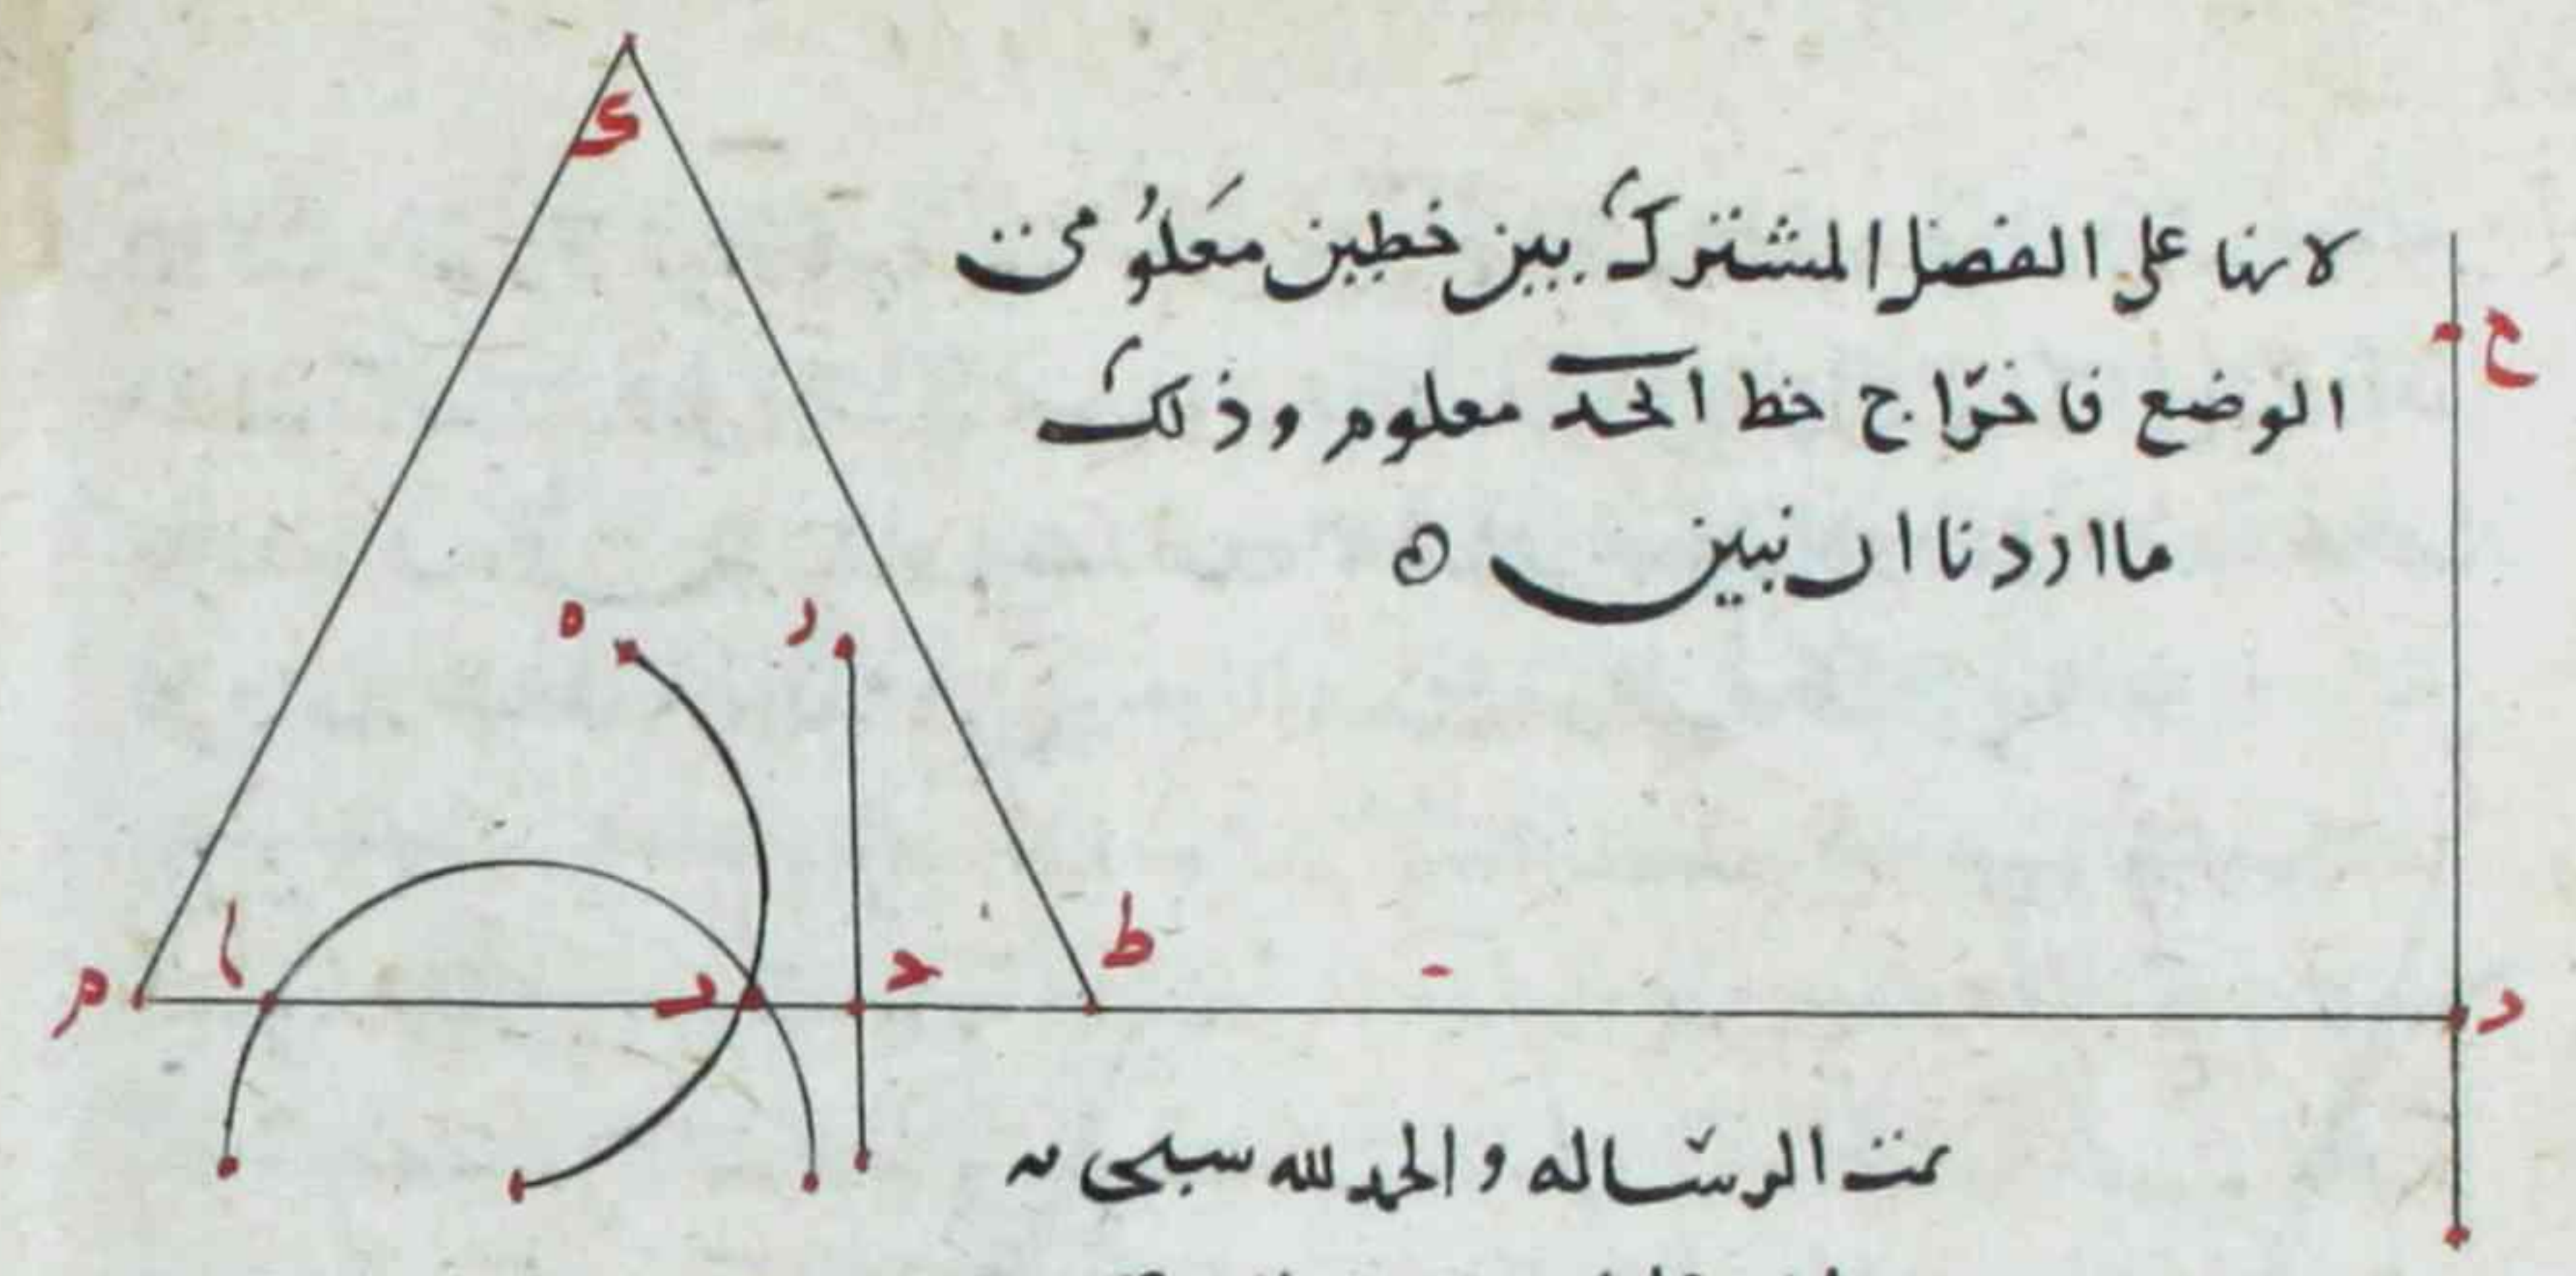 لانها على الفصل المشترك بين خطين معلومى
الوضع فاخراج خط الحد معلوم وذلك
ما اردنا ان نبين ه
تمت الرساله والحمد لله سبحىنه
ى
ح
ه
ر
ا
ط
م
ب
ح
د